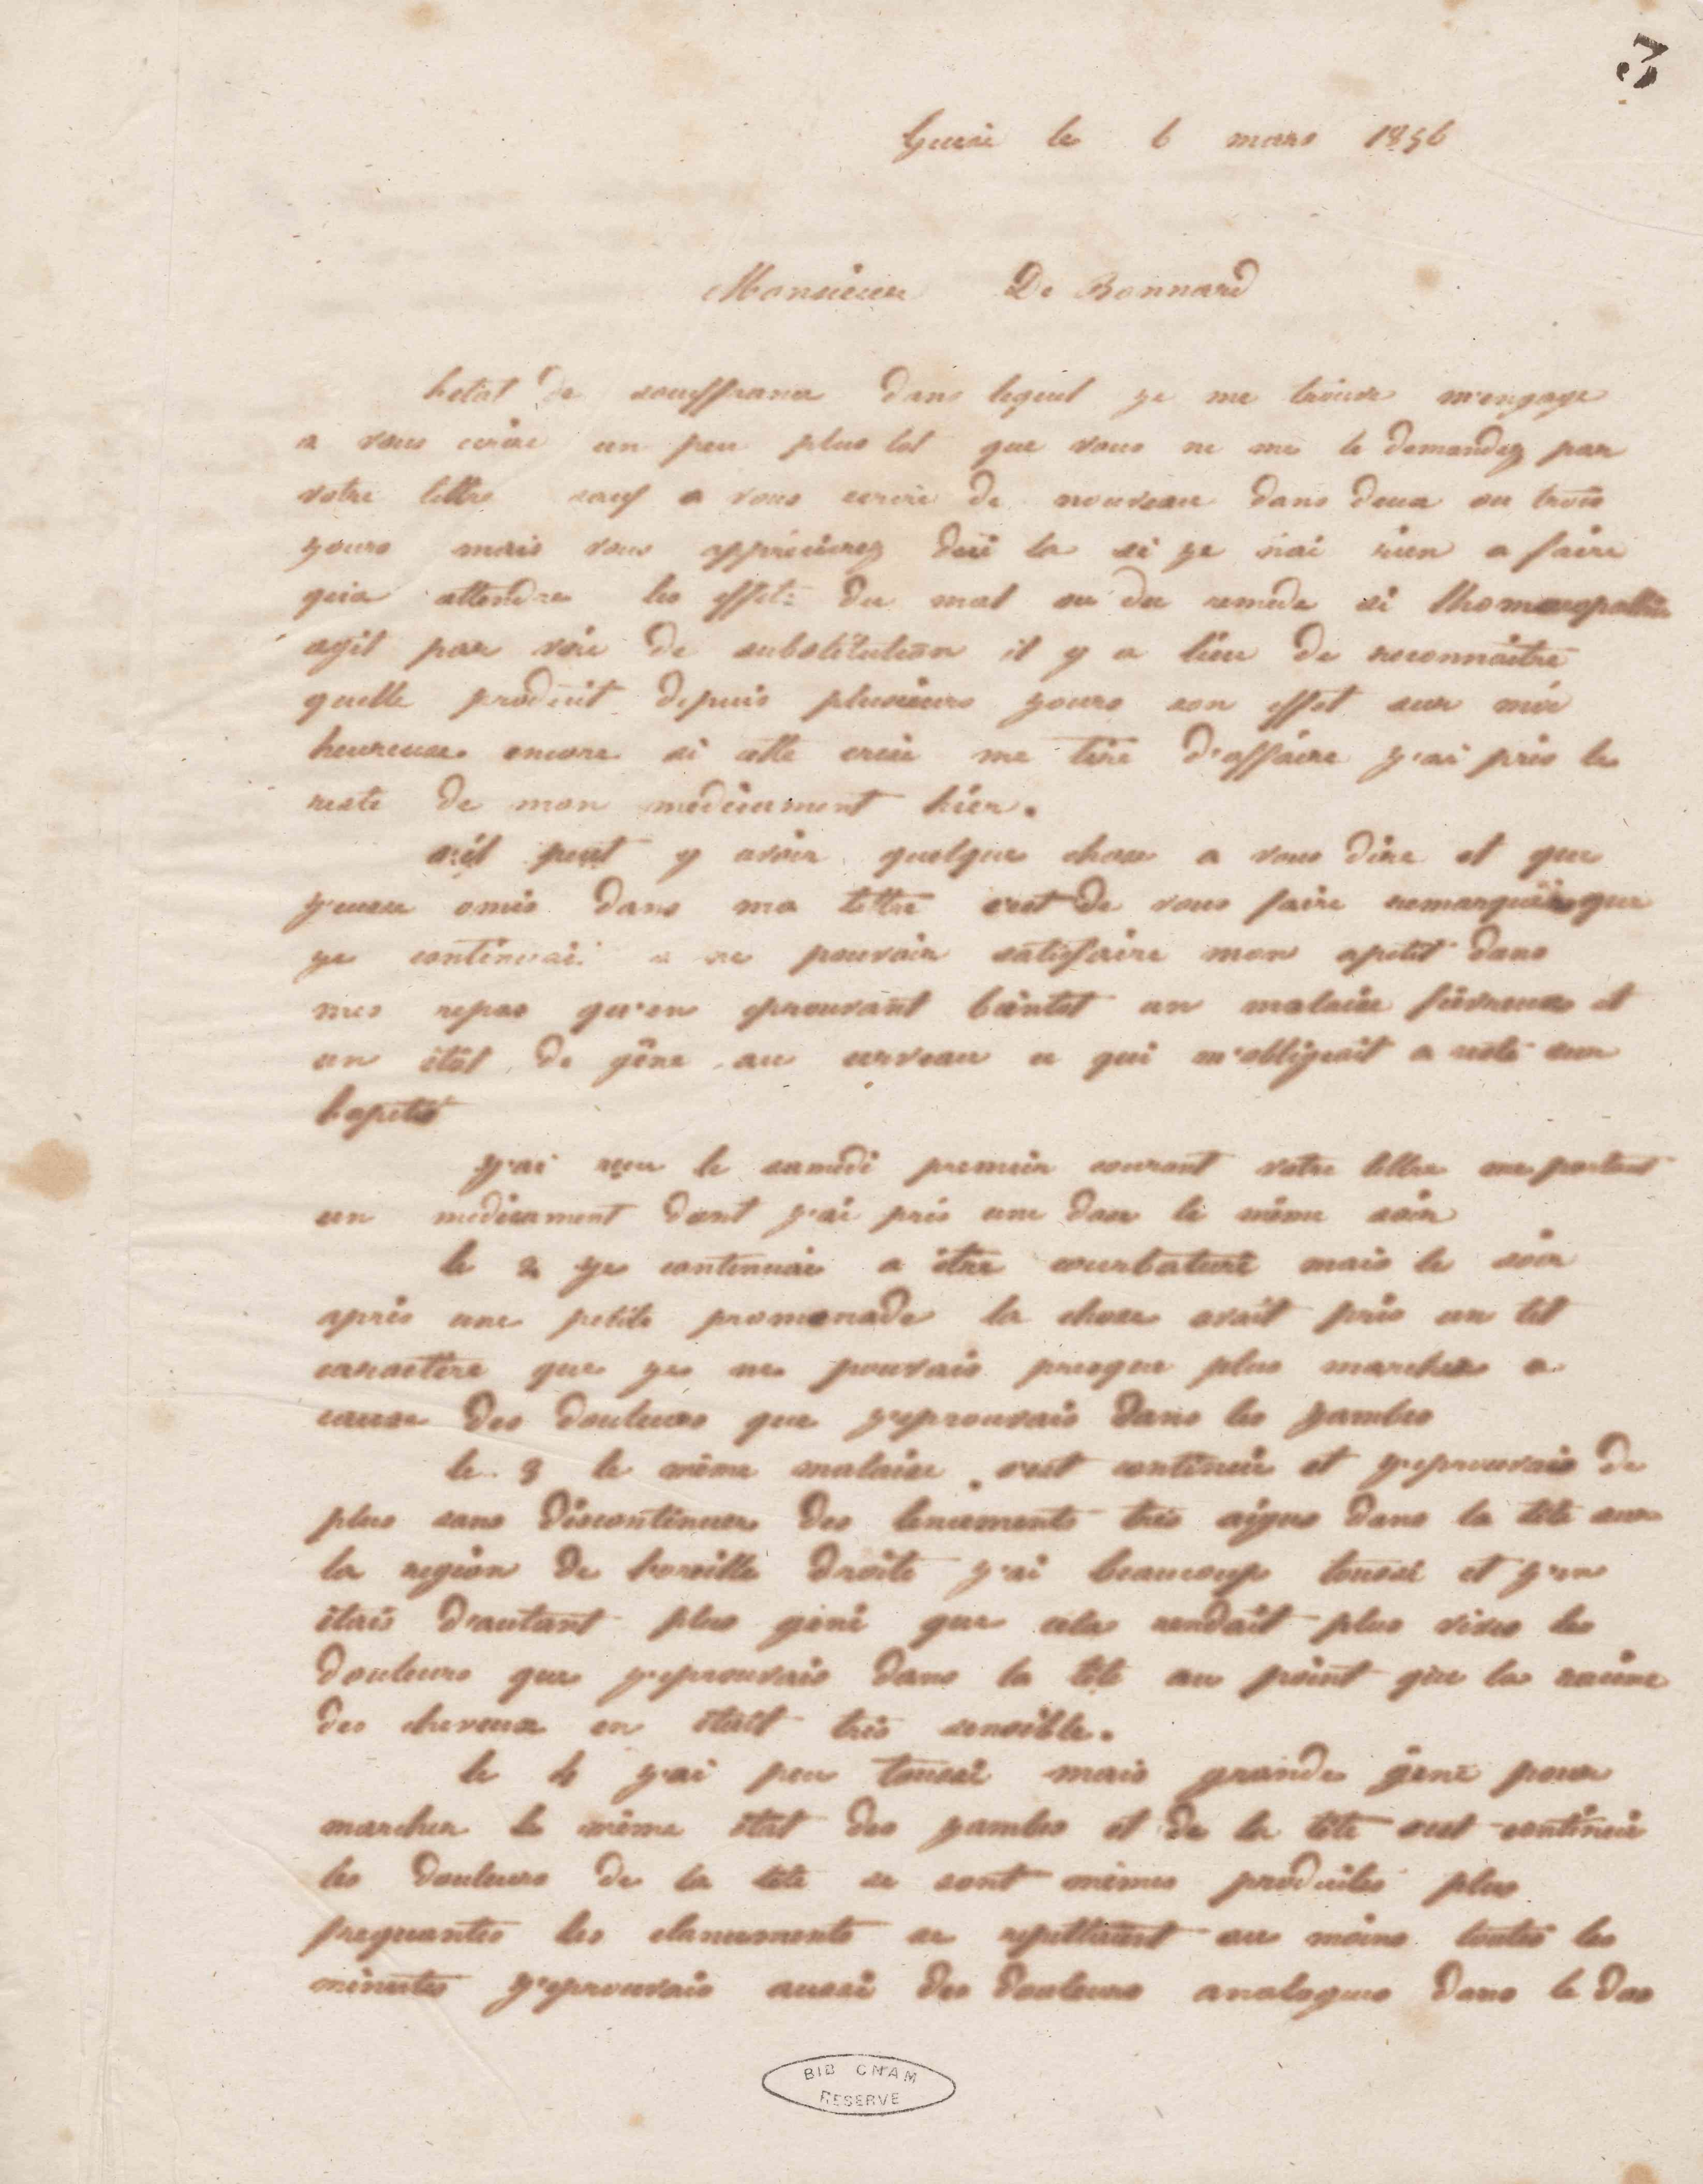 5
Guise le 6 mars 1856
Monsieur De Bonnard
L'etat de souffrance dans lequel je me trouve m'engage
a vous ecrire un peu plus tot que vous ne me le demandez par
votre lettre sauf a vous ecrire de nouveau dans deux ou trois
jours mais vous apprécierez d'ici la si je n'ai rien a faire
qu'a attendre les effets du mal ou du remede si lhomoeopathie
agit par voie de substitution il y a lieu de reconnaitre
quelle produit depuis plusieurs jours son effet sur moi
heureux encore si cette crise me tire d'affaire j'ai pris le
reste de mon medicament hier.
s'il peut y avoir quelque chose a vous dire et que
j'eusse omis dans ma lettre c'est de vous faire remarquer que
je continuai a ne pouvoir satisfaire mon apetit dans
mes repas qu'en eprouvant bientot un malaise fievreux et
un etat de gêne au cerveau ce qui m'obligeait a resté sur
l'apetit
J'ai reçu le samedi premier courant votre lettre me portant
un medicament dont j'ai pris une dose le même soir
le 2 je continuai a être courbaturé mais le soir
après une petite promenade la chose avait pris un tel
caractere que je ne pouvais presque plus marcher a
cause des douleurs que j'eprouvais dans les jambes
le 3 le même malaise s'est continué et j'eprouvais de
plus sans discontinuer des lencements très aigus dans la tête sur
la region de l'oreille droite j'ai beaucoup toussé et j'en
étais d'autant plus géné que cela rendait plus vives les
douleurs que j'eprouvais dans la tête au point que la racine
des cheveux en était très sensible.
le 4 j'ai peu toussé mais grande gêne pour
marcher le même état des jambes et de la tête s'est continué
les douleurs de la tête se sont mêmes produites plus
frequantes les elancements se repettaient au moins toutes les
minutes j'eprouvais aussi des douleurs analogues dans le dos
BIB CNAM
RESERVE